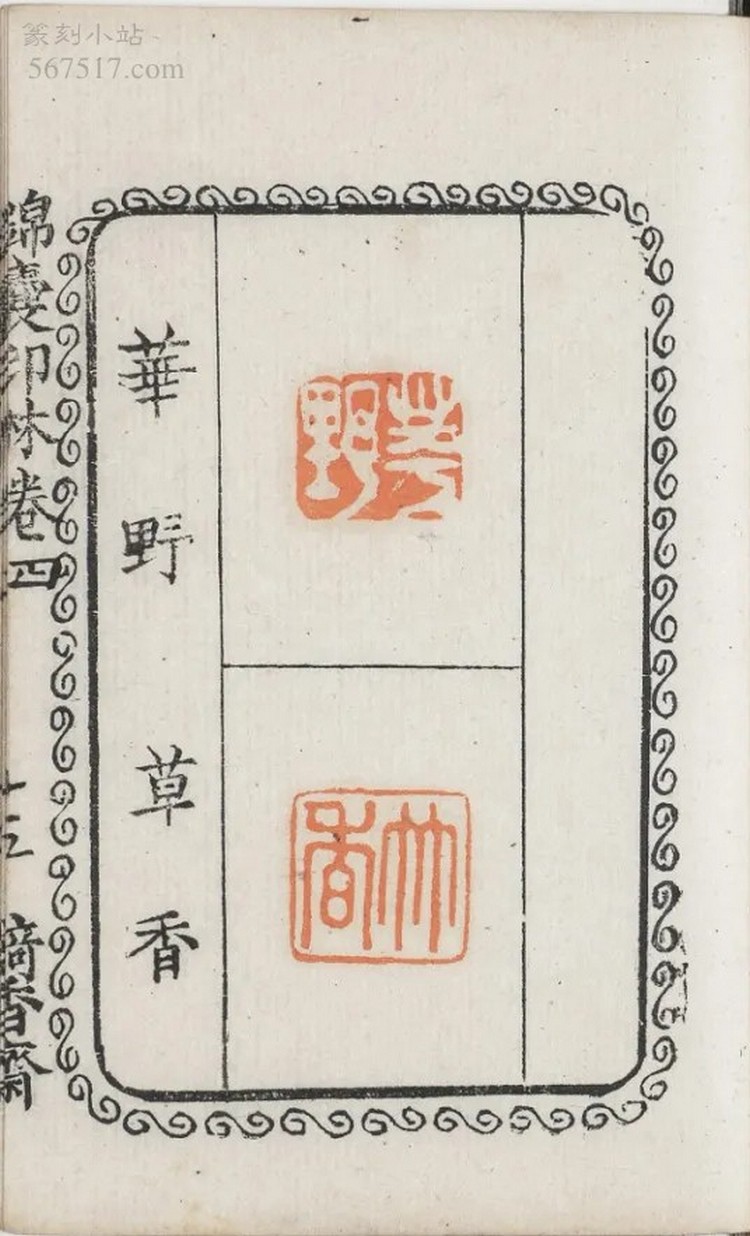 篆刻小站
567517.com
華野
艸香
華野 草香
錦囊印林卷四
十三
香齋